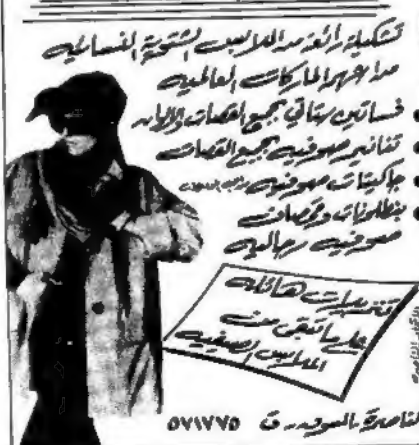 تشكيلة رائعة من الملابس الشتوية النسائية
من أشهر الماركات العالمية
• فساتين ستاتي بجميع القصات والالوان
• تنانير صوفية بجميع القصات
• جاكيتات صوفية
• بنطلونات وقمصان
صوفية رجالية
تنزيلات هائلة
على ما تبقى من
الملابس الصيفية
الناصرة - السوق - ت ٥٧١٧٧٥